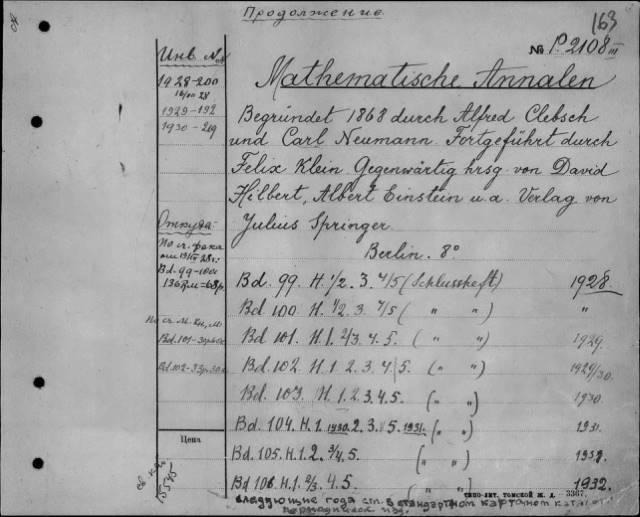 Продолжение
163
№ P 2108 III
Инв №
1928-200
1929-192
1930-219
Mathematische Annalen
Begründet 1868 durch Alfred Clebsch
und Carl Neumann. Fortgeführt durch
Felix Klein. Gegenwärtig hrsg. von David
Hilbert, Albert Einstein u.a. Verlag von
Julius Springer.
Berlin. 8°
Откуда:
По сч. фака
Bd. 99-100
Bd. 99. H. 1/2. 3. 4/5 (Schlussheft) 1928.
Bd 100. H. 1/2. 3. 4/5 ( " " ) "
Bd. 101. H. 1. 2/3. 4. 5. ( " " ) 1929.
Bd. 102. H. 1. 2. 3. 4. 5. ( " " ) 1929/30.
Bd. 103. H. 1. 2. 3. 4. 5. ( " " ) 1930.
Bd. 104. H. 1. 1930. 2. 3. 5. 1931. ( " " ) 1931.
Bd. 105. H. 1. 2. 3/4. 5. ( " " )
Bd 106. H. 1. 2/3. 4. 5. ( " " ) 1932.
Цена
ТИПО-ЛИТ. ТОМСКОЙ Ж. Д. — 3367.
следующие года см. в стандартном карточном